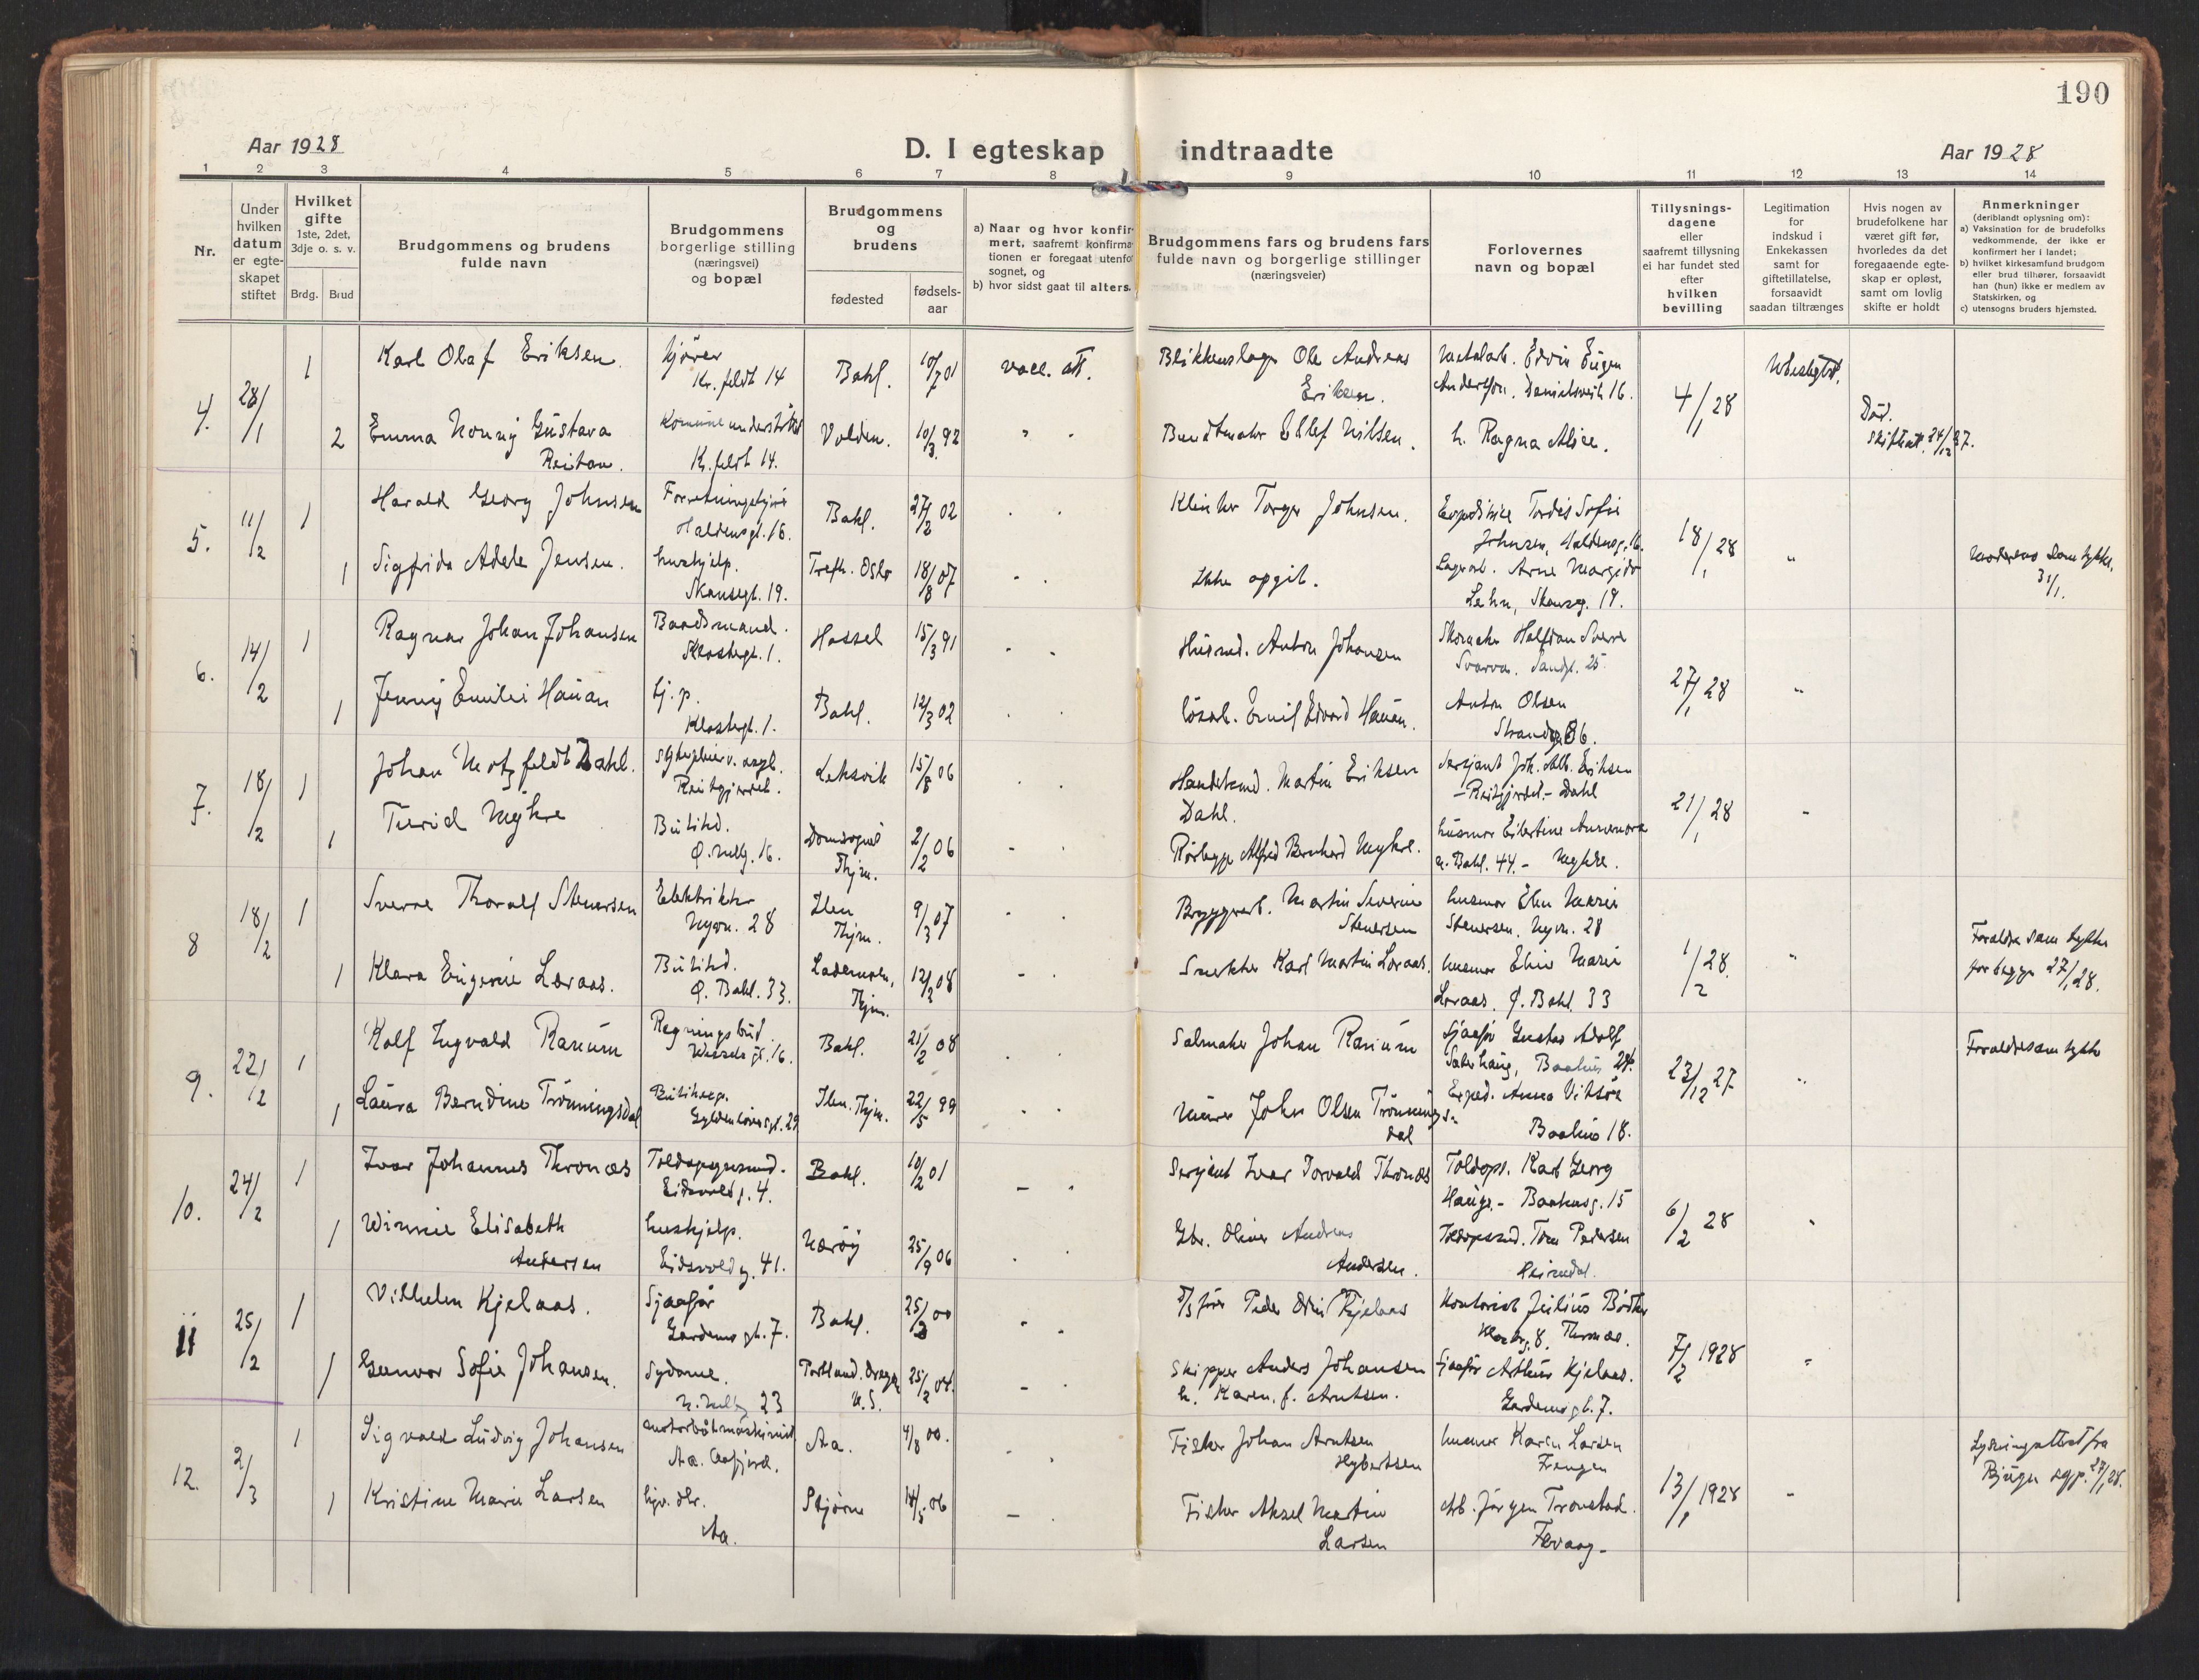 190
Aar 1928
D. I egteskap indtraadte
Aar 1928
1 2 3 4 5 6 7 8 9 10 11 12 13 14
Nr.
Under
hvilken
datum
er egte-
skapet
stiftet
Hvilket
gifte
1ste, 2det,
3dje o. s. v.
Brdg. Brud
Brudgommens og brudens
fulde navn
Brudgommens
borgerlige stilling
(næringsvei)
og bopæl
Brudgommens
og
brudens
fødested
fødsels-
aar
a) Naar og hvor konfir-
mert, saafremt konfirma-
tionen er foregaat utenfo
sognet, og
b) hvor sidst gaat til alters.
Brudgommens fars og brudens fars
fulde navn og borgerlige stillinger
(næringsveier)
Forlovernes
navn og bopæl
Tillysnings-
dagene
eller
saafremt tillysning
ei har fundet sted
efter
hvilken
bevilling
Legitimation
for
indskud i
Enkekassen
samt for
giftetillatelse,
forsaavidt
saadan tiltrænges
Hvis nogen av
brudefolkene har
været gift før,
hvorledes da det
foregaaende egte-
skap er opløst,
samt om lovlig
skifte er holdt
Anmerkninger
(deriblandt oplysning om):
a) Vaksination for de brudefolks
vedkommende, der ikke er
konfirmert her i landet;
b) hvilket kirkesamfund brudgom
eller brud tilhører, forsaavidt
han (hun) ikke er medlem av
Statskirken, og
c) utensogns bruders hjemsted.
4. 28/1 1 Karl Olaf Eriksen. kjører
Kr. feldt 14 Bakl. 10/7 01 vacc. att. Blikkenslager Ole Andreas
Eriksen. Metalarb. Edvin Eugen
Anderssen. Danielsveit 16. 4/1 28
2 Emma Nonny Gustava
Reitan. Kr. feldt 14. Volden. 10/3 92 Buntmaker Ellef Nilsen. h. Ragna Alice. Død.
Skifteatt. 24/12 27.
5. 11/2 1 Harald Georg Johnsen Forretningsfører
Haldensgt. 16. Bakl. 27/2 02 Torger Johnsen. Tordis Sofie
Johnsen, Haldensg. 16. 18/1 28 "
1 Sigfrida Adele Jensen. hushjelp.
Skansegt. 19. Trefh. Oslo 18/8 07 Ikke opgit. Lagerarb. Arne Margido
Lehn, Skanseg. 19. Moderens samtykke.
31/1.
6. 14/2 1 Ragnar Johan Johansen Baadsmand.
Klostergt. 1. Hassel 15/3 91 Husmd. Anton Johansen Skomaker Halfdan Sverre
Svarva. Sandgt. 25. 27/1 28 "
1 Jenny Emilie Hauan tj.p.
Klostergt. 1. Bakl. 12/3 02 løsarb. Emil Edvard Hauan. Anton Olsen
Strandg. 86.
7. 18/2 1 Johan Motzfeldt Dahl.
Reitgjerdet. Leksvik 15/8 06 Handelsmd. Martin Eriksen
Dahl. Sersjant Joh. Alb. Eriksen
-Reitgjerdet- Dahl 21/1 28 "
1 Turid Myhre Butikd.
Ø. Møllg. 16. Domsognet
Thjm. 2/2 06 Rørlegger Alfred Bernhard Myhre. husmor Eilertine Annanora
n. Bakl. 44 - Myhre.
8 18/2 1 Sverre Thoralf Stenersen Elektriker
Nyvn. 28 Ilen
Thjm. 9/3 07 Bryggearb. Martin Severin
Stenersen husmor Elen Marie
Stenersen. Nyvn. 28 1/2 28. " Forældresamtykke
for begge 27/1 28.
1 Klara Eugenie Løraas. Butikd.
Ø. Bakl. 33. Lademoen,
Thjm. 12/2 08 Snekker Karl Martin Løraas. husmor Elise Marie
Løraas. Ø. Bakl. 33
9. 22/2 1 Rolf Ingvald Ranum Regningsbud
Bakl. 21/2 08 Salmaker Johan Ranum sjaafør Gustav Adolf
Sæterhaug, Baahus 24. 23/12 27 " Forældresamtykke
1 Laura Berndine Trønningsdal
Gyldenløvesgt. 29 Ilen. Thjm. 22/5 99 Murer John Olsen Trønnings-
dal Exped. Anna Viktøre
Baahus 18.
10. 24/2 1 Ivar Johannes Thronæs Toldopsynsmd.
Eidsvoldg. 4. Bakl. 10/2 01 Sersjant Ivar Torvald Thronæs Toldops. Karl Georg
Hauge. - Baahusg. 15 6/2 28 "
1 Winnie Elisabeth
Andersen hushjelp.
Eidsvoldg. 41. Nærøy 25/9 06 Gbr. Oliver Andreas
Andersen. Toldopsmd. Tom Pedersen
Heimdal.
11 25/2 1 Vilhelm Kjelaas. Sjaafør
Gardemogt. 7. Bakl. 25/3 00 Peder Odin Kjelaas Kontorist Julius Bødker
Klosterg. 8. Thronæs. 7/2 1928 "
1 Gunvor Sofie Johansen. Sydame.
n. Møllg 23 Portland. Oregon
U.S. 25/2 04. Skipper Anders Johansen
h. Karen. f. Arntsen. Sjaafør Arthur Kjelaas.
Gardemogt. 7.
12. 2/3 1 Sigvald Ludvig Johansen motorbåtmaskinist
Aa. Aafjord. Aa. 4/8 00. Fisker Johan Arntsen
Hybertsen husmor Karen Larsen
Frengen 13/1 1928 " Lysningsattest fra
Bjugn sgp. 27/1 28.
1 Kristine Marie Larsen
Aa. Stjørna 14/5 06 Fisker Aksel Martin
Larsen Arb. Jørgen Tronstad.
Fevaag.